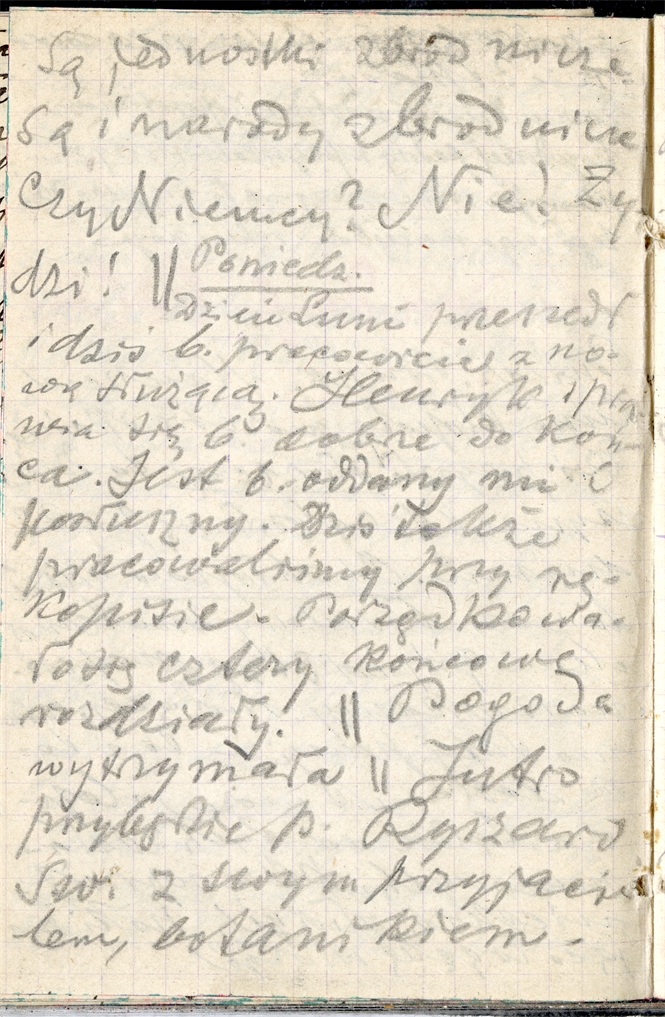 Są jednostki zbrodnicze
Są i narody zbrodnicze
Czy Niemcy? Nie! Ży-
dzi! || Poniedz.
Dzień Luni przeszedł
i dziś b. pracowicie z no-
wą służącą. Henryk spra
wia się b. dobrze do koń-
ca. Jest b. oddany mi i
posłuszny. Dziś także
pracowaliśmy przy rę-
kopisie. Porządkowa-
ło się cztery końcowe
rozdziały. || Pogoda
wytrzymała || Jutro
przybędzie p. Ryszard
Św. z swym przyjacie
lem, botanikiem.